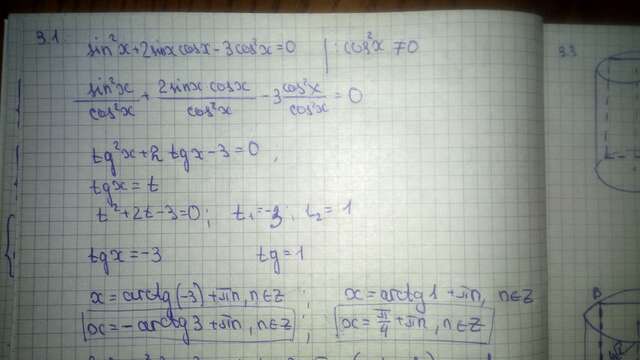 3.1 sin²x+2sinxcosx-3cos²x=0 | :cos²x≠0
sin²x/cos²x + 2sinx cosx/cos²x - 3 cos²x/cos²x = 0
tg²x+2 tgx-3=0,
tgx=t
t²+2t-3=0; t₁=-3, t₂=1
tgx=-3 tg=1
x=arctg(-3)+πn, n∈Z; x=arctg1+πn, n∈Z
x=-arctg3+πn, n∈Z; x=π/4+πn, n∈Z
3.3
B